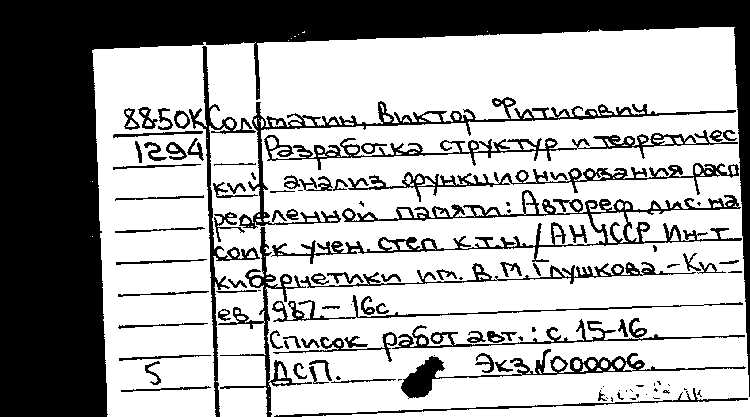 8850К Соломатин, Виктор Фитисович.
1294 Разработка структур и теоретичес
кий анализ функционирования расп
ределенной памяти: Автореф. дис. на
соиск. учен. степ к.т.н. / АН УССР, Ин-т
кибернетики им. В.М. Глушкова. - Ки-
ев, 1987. - 16с.
Список работ авт.: с. 15-16.
5 ДСП. Экз. №000006.